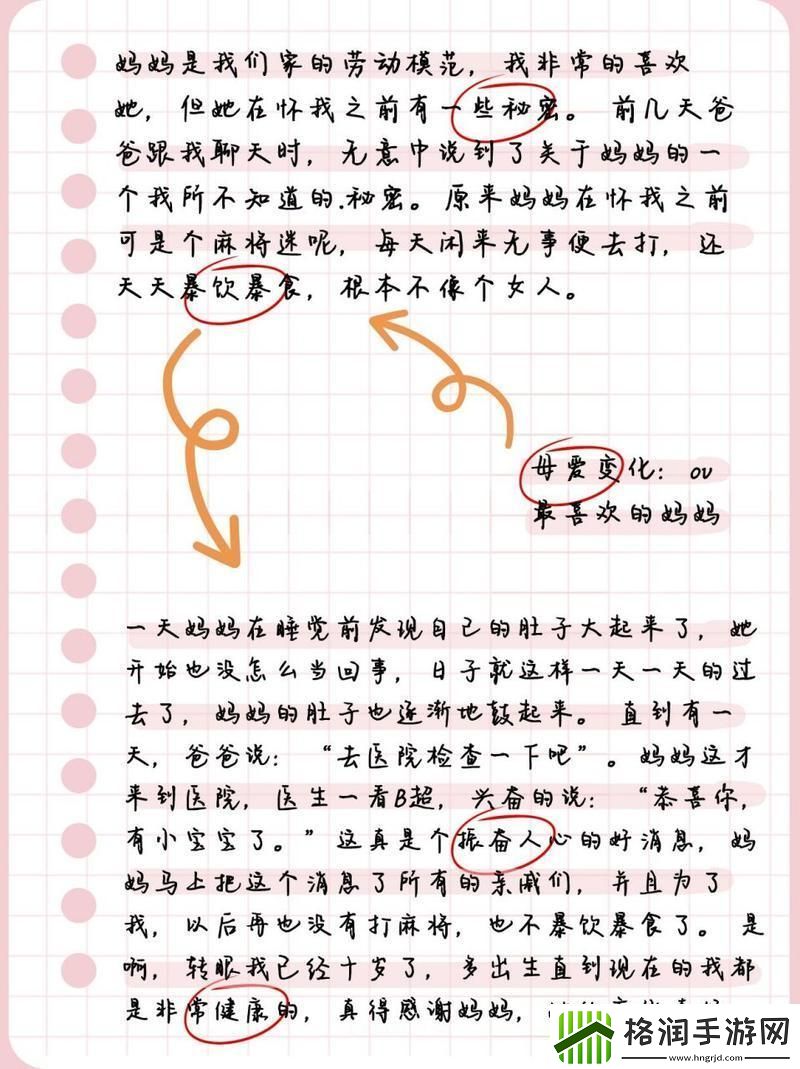 妈妈是我们家的劳动模范，我非常的喜欢
她，但她在怀我之前有一些秘密。前几天爸
爸跟我聊天时，无意中说到了关于妈妈的一
个我所不知道的.秘密。原来妈妈在怀我之前
可是个麻将迷呢，每天闲来无事便去打，还
天天暴饮暴食，根本不像个女人。
母爱变化：ov
最喜欢的妈妈
一天妈妈在睡觉前发现自己的肚子大起来了，她
开始也没怎么当回事，日子就这样一天一天的过
去了，妈妈的肚子也逐渐地鼓起来。直到有一
天，爸爸说：“去医院检查一下吧”。妈妈这才
来到医院，医生一看B超，兴奋的说：“恭喜你，
有小宝宝了。”这真是个振奋人心的好消息，妈
妈马上把这个消息了所有的亲戚们，并且为了
我，以后再也没有打麻将，也不暴饮暴食了。是
啊，转眼我已经十岁了，多出生直到现在的我都
是非常健康的，真得感谢妈妈，
格润手游网
www.hngrjd.com